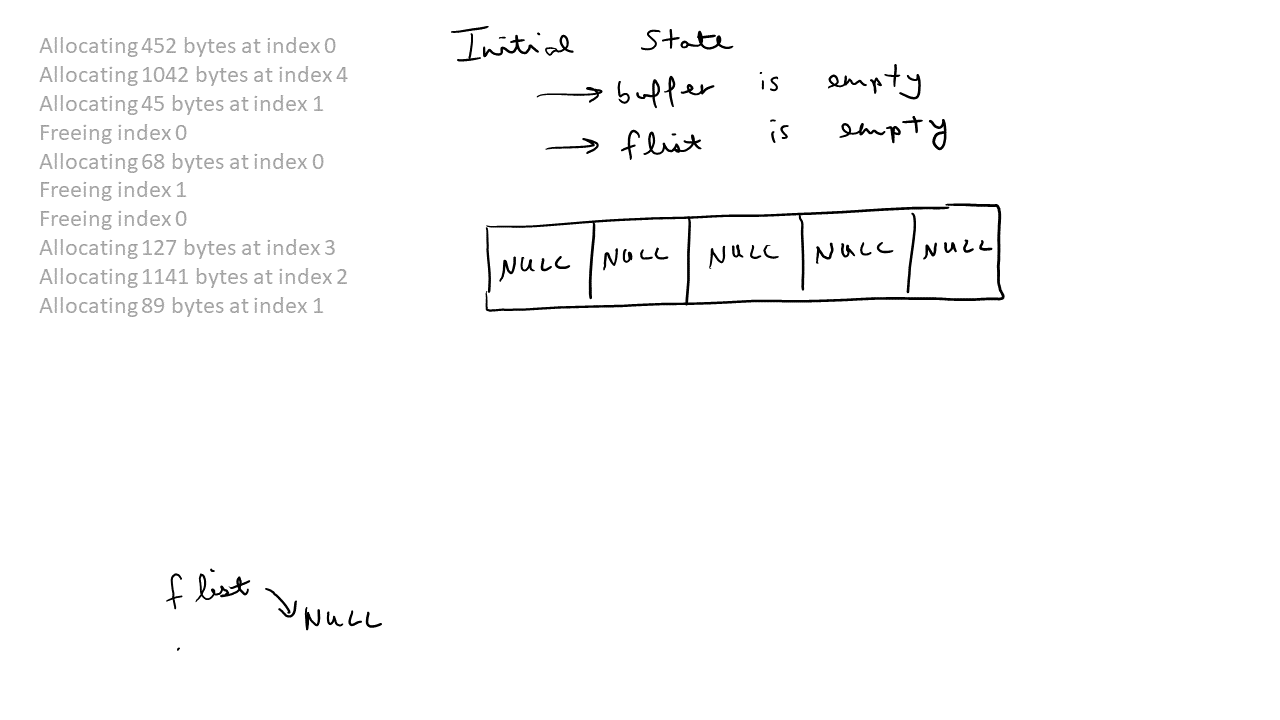 Allocating 452 bytes at index 0
Allocating 1042 bytes at index 4
Allocating 45 bytes at index 1
Freeing index 0
Allocating 68 bytes at index 0
Freeing index 1
Freeing index 0
Allocating 127 bytes at index 3
Allocating 1141 bytes at index 2
Allocating 89 bytes at index 1
Initial State
→ buffer is empty
→ flist is empty
NULL NULL NULL NULL NULL
flist
NULL